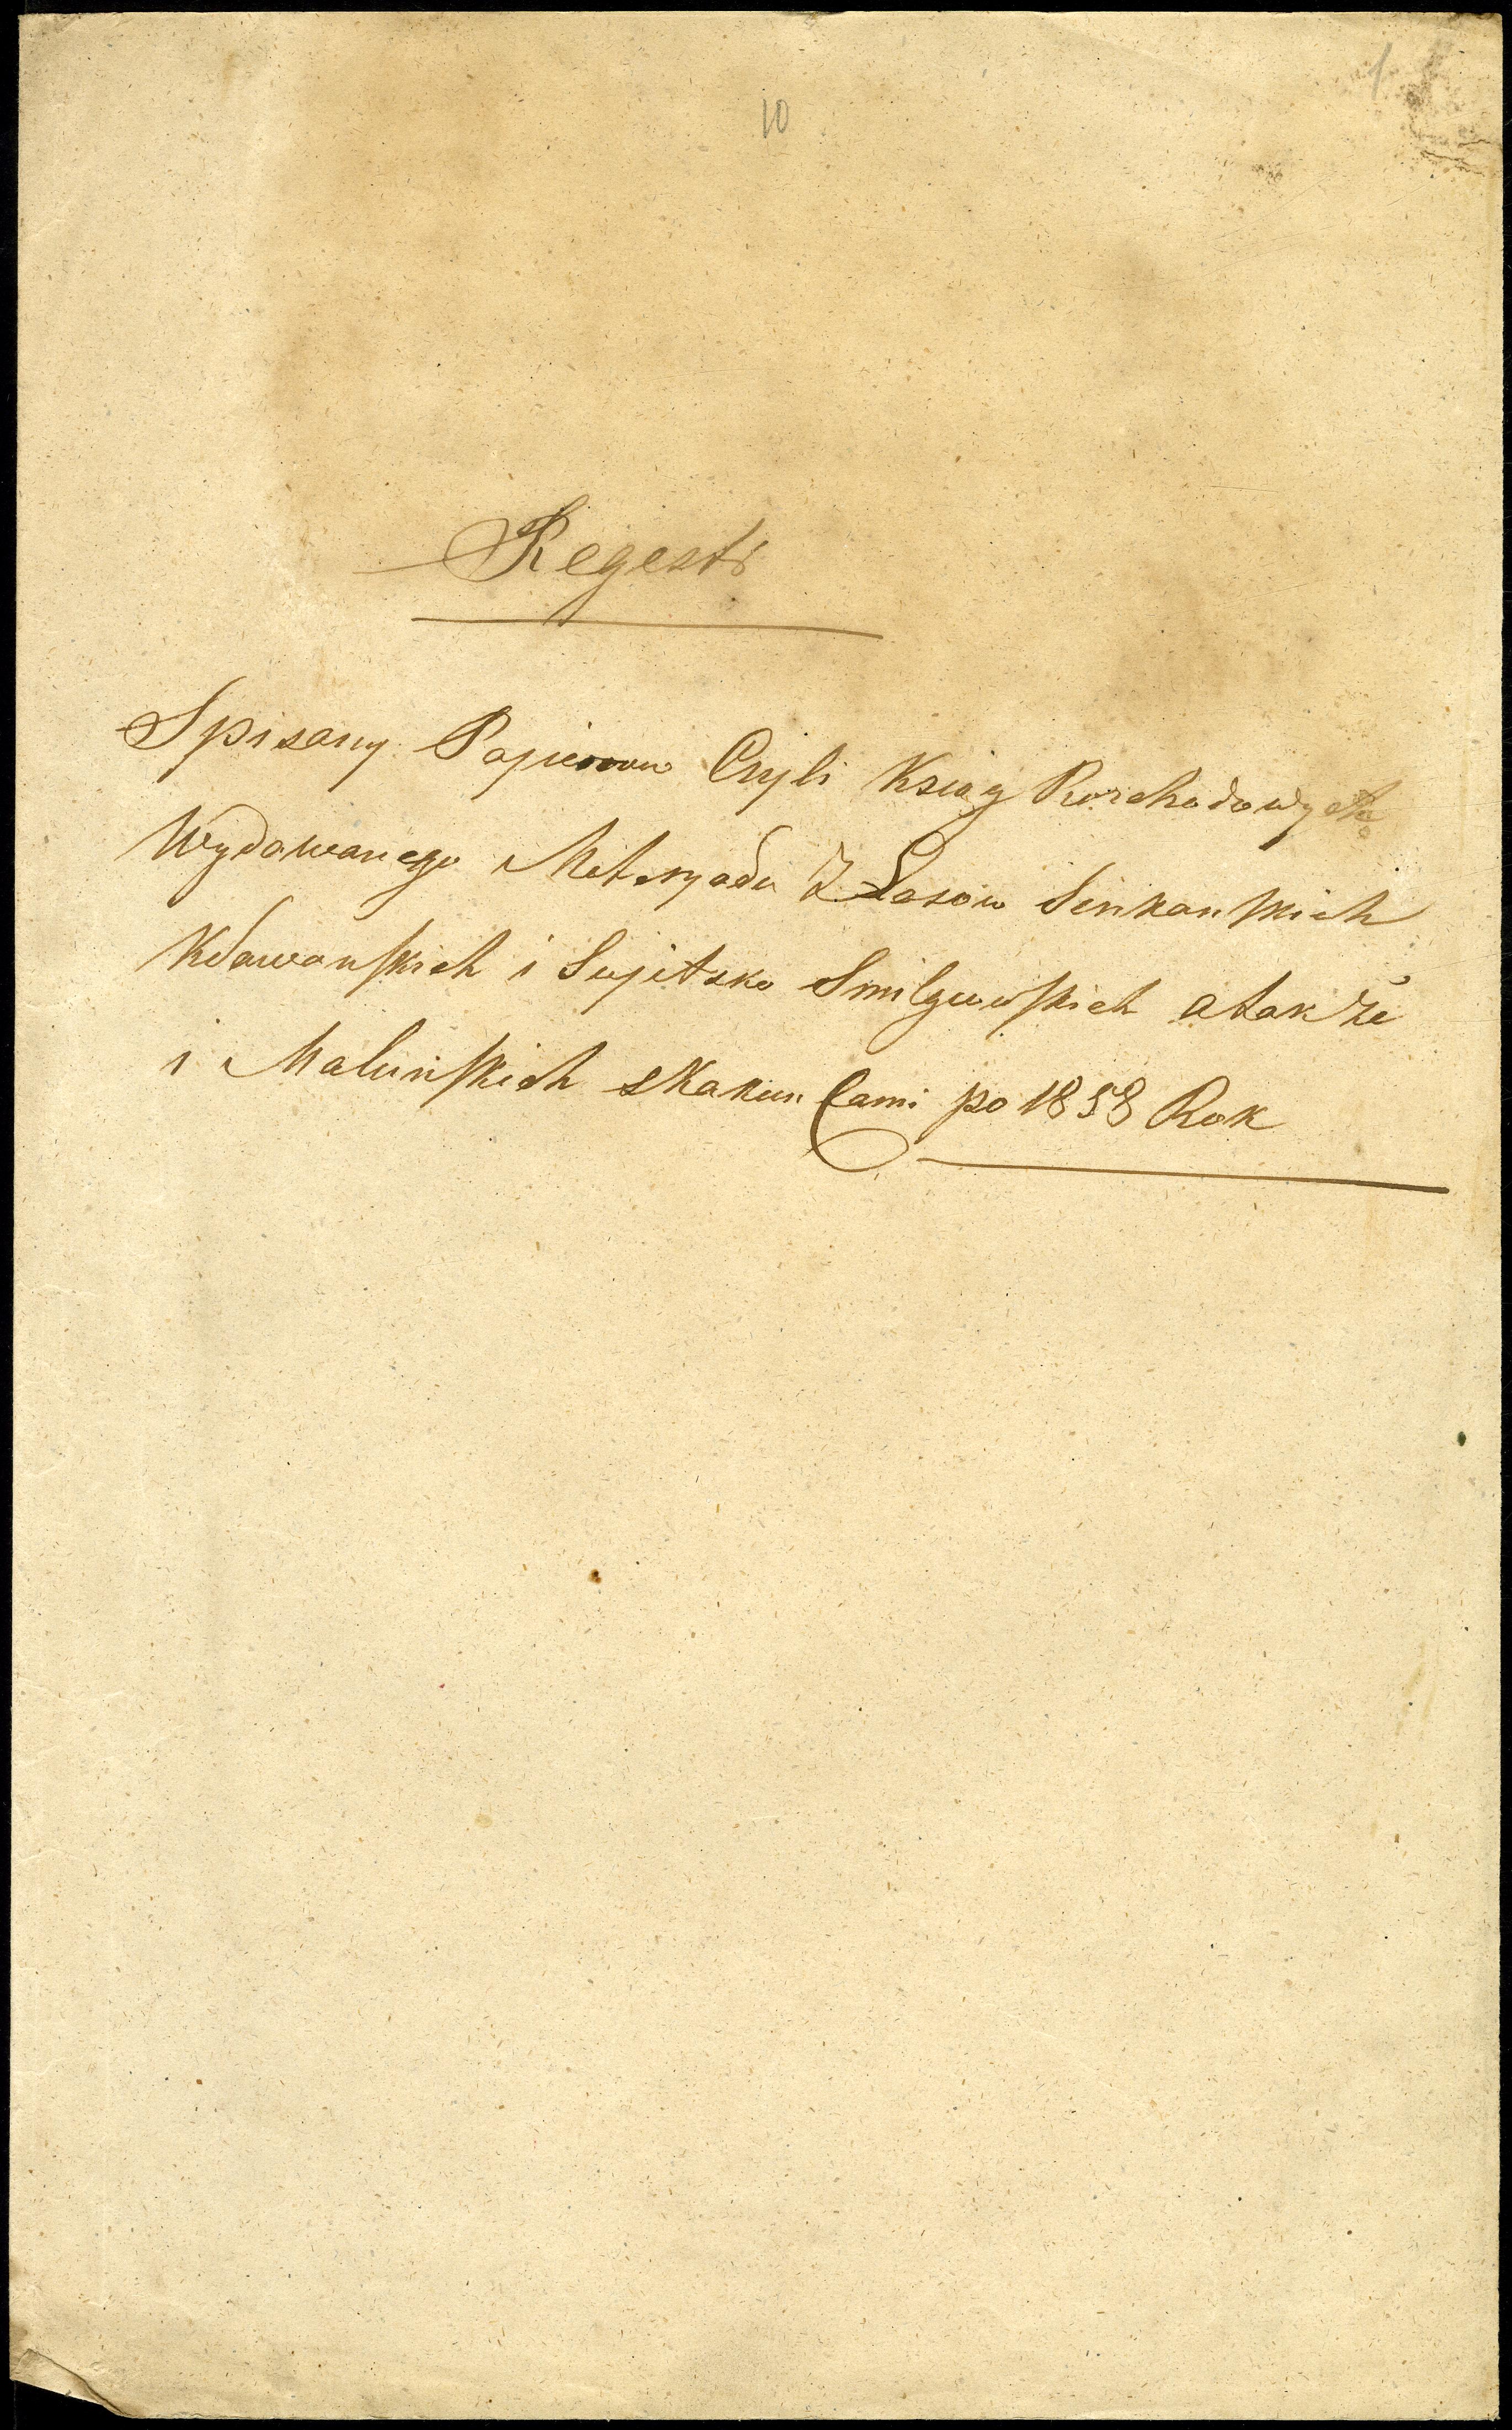 10
1
Regestr
Spisany Papierow Czyli Ksiąg Rozchodowych
Wydawanego Materyału Z Lasow Sinkanskich
Kławanskich i Supitsko Smilgiewskich a także
i Malunskich po 1858 Rok